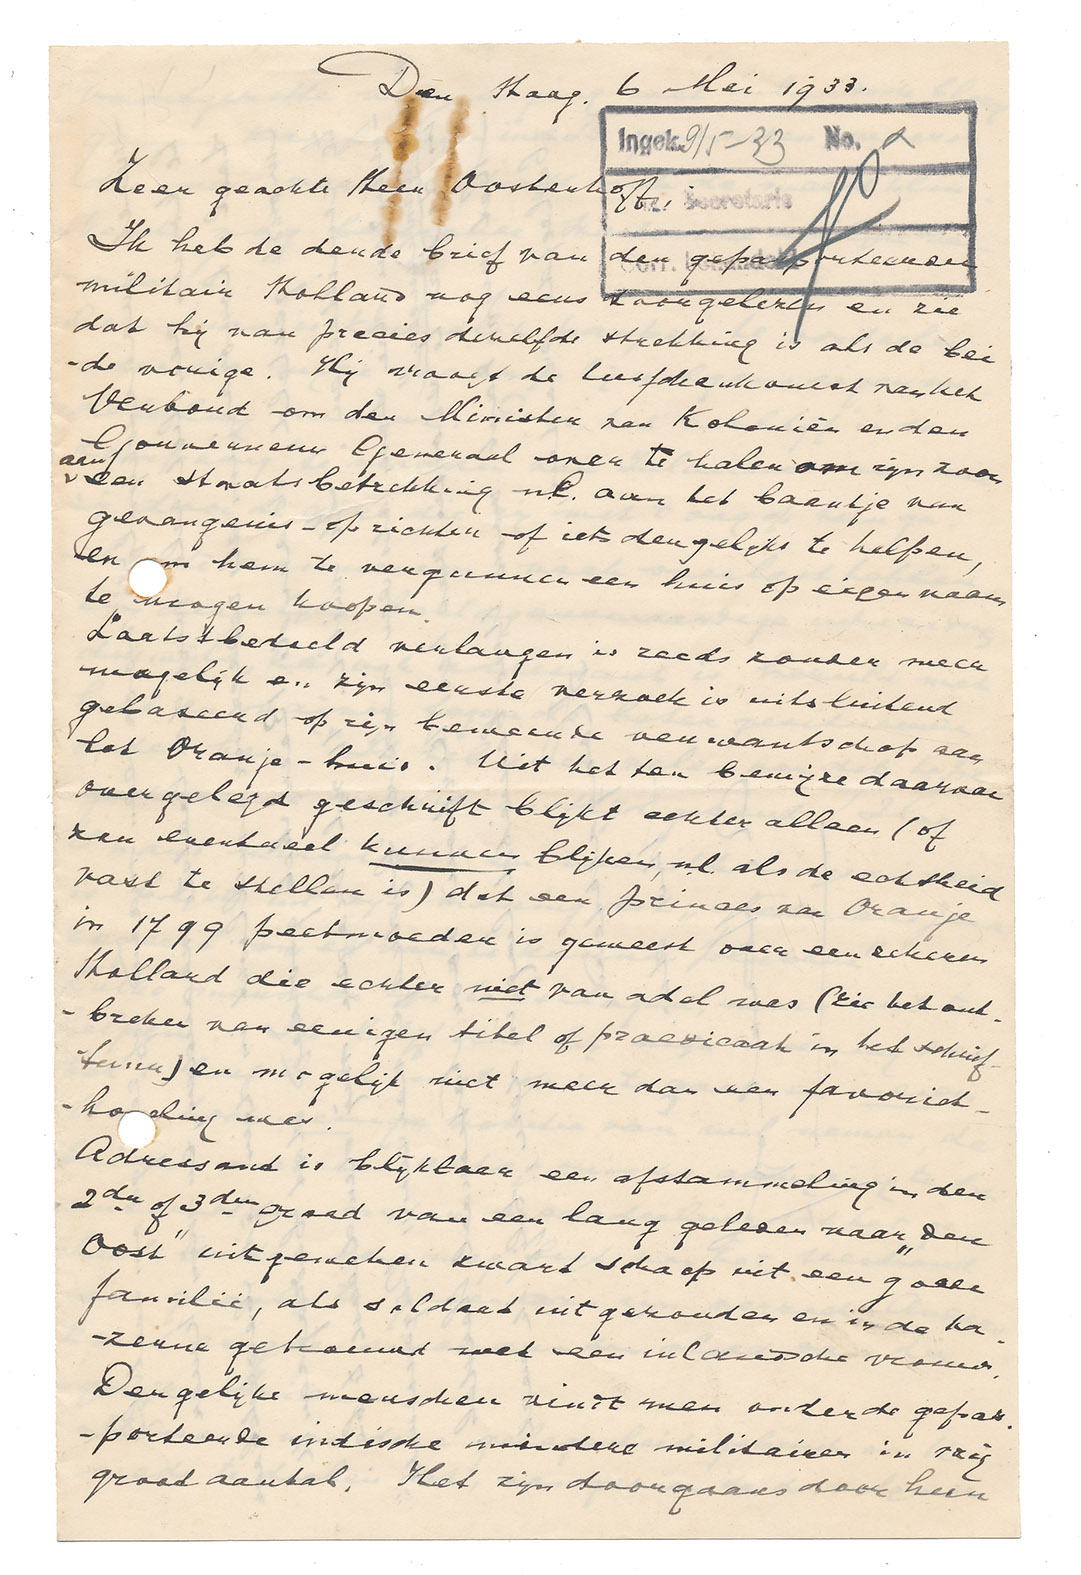 Den Haag. 6 Mei 1933.
Ingek. 9/5-33 No. a
Zeer geachte Heer Oostenhoff,
Secretaris
Corr.
Ik heb de derde brief van den gepasporteerden
militair Holland nog eens doorgelezen en zie
dat hij van precies dezelfde strekking is als de bei
-de vorige. Hij vraagt de tusschenkomst van het
Verbond om den Minister van Koloniën en den
Gouverneur Generaal over te halen om zijn zoon
aan
een staatsbetrekking nl. aan het baantje van
gevangenis-opzichter of iets dergelijks te helpen,
en om hem te vergunnen een huis op eigen naam
te mogen koopen.
Laatstbedoeld verlangen is reeds zonder meer
mogelijk en zijn eerste verzoek is uitsluitend
gebaseerd op zijn beweerde verwantschap aan
het Oranje-huis. Uit het ten bewijze daarvan
overgelegd geschrift blijkt echter alleen (of
zou eventueel kunnen blijken, nl. als de echtheid
vast te stellen is) dat een prinses van Oranje
in 1799 peetmoeder is geweest over een zekeren
Holland die echter niet van adel was (zie het ont-
-breken van eenigen titel of praedicaat in het schrif-
-tuur) en mogelijk niet meer dan een favoriet-
-hoveling was.
Adressant is blijkbaar een afstammeling in den
2den of 3den graad van een lang geleden naar "den
Oost" uitgeweken zwart schaap uit een goede
familie, als soldaat uitgezonden en in de ka-
-zerne getrouwd met een inlandsche vrouw.
Dergelijke menschen vindt men onder de gepas-
-porteerde indische mindere militairen in vrij
groot aantal. Het zijn doorgaans door hun